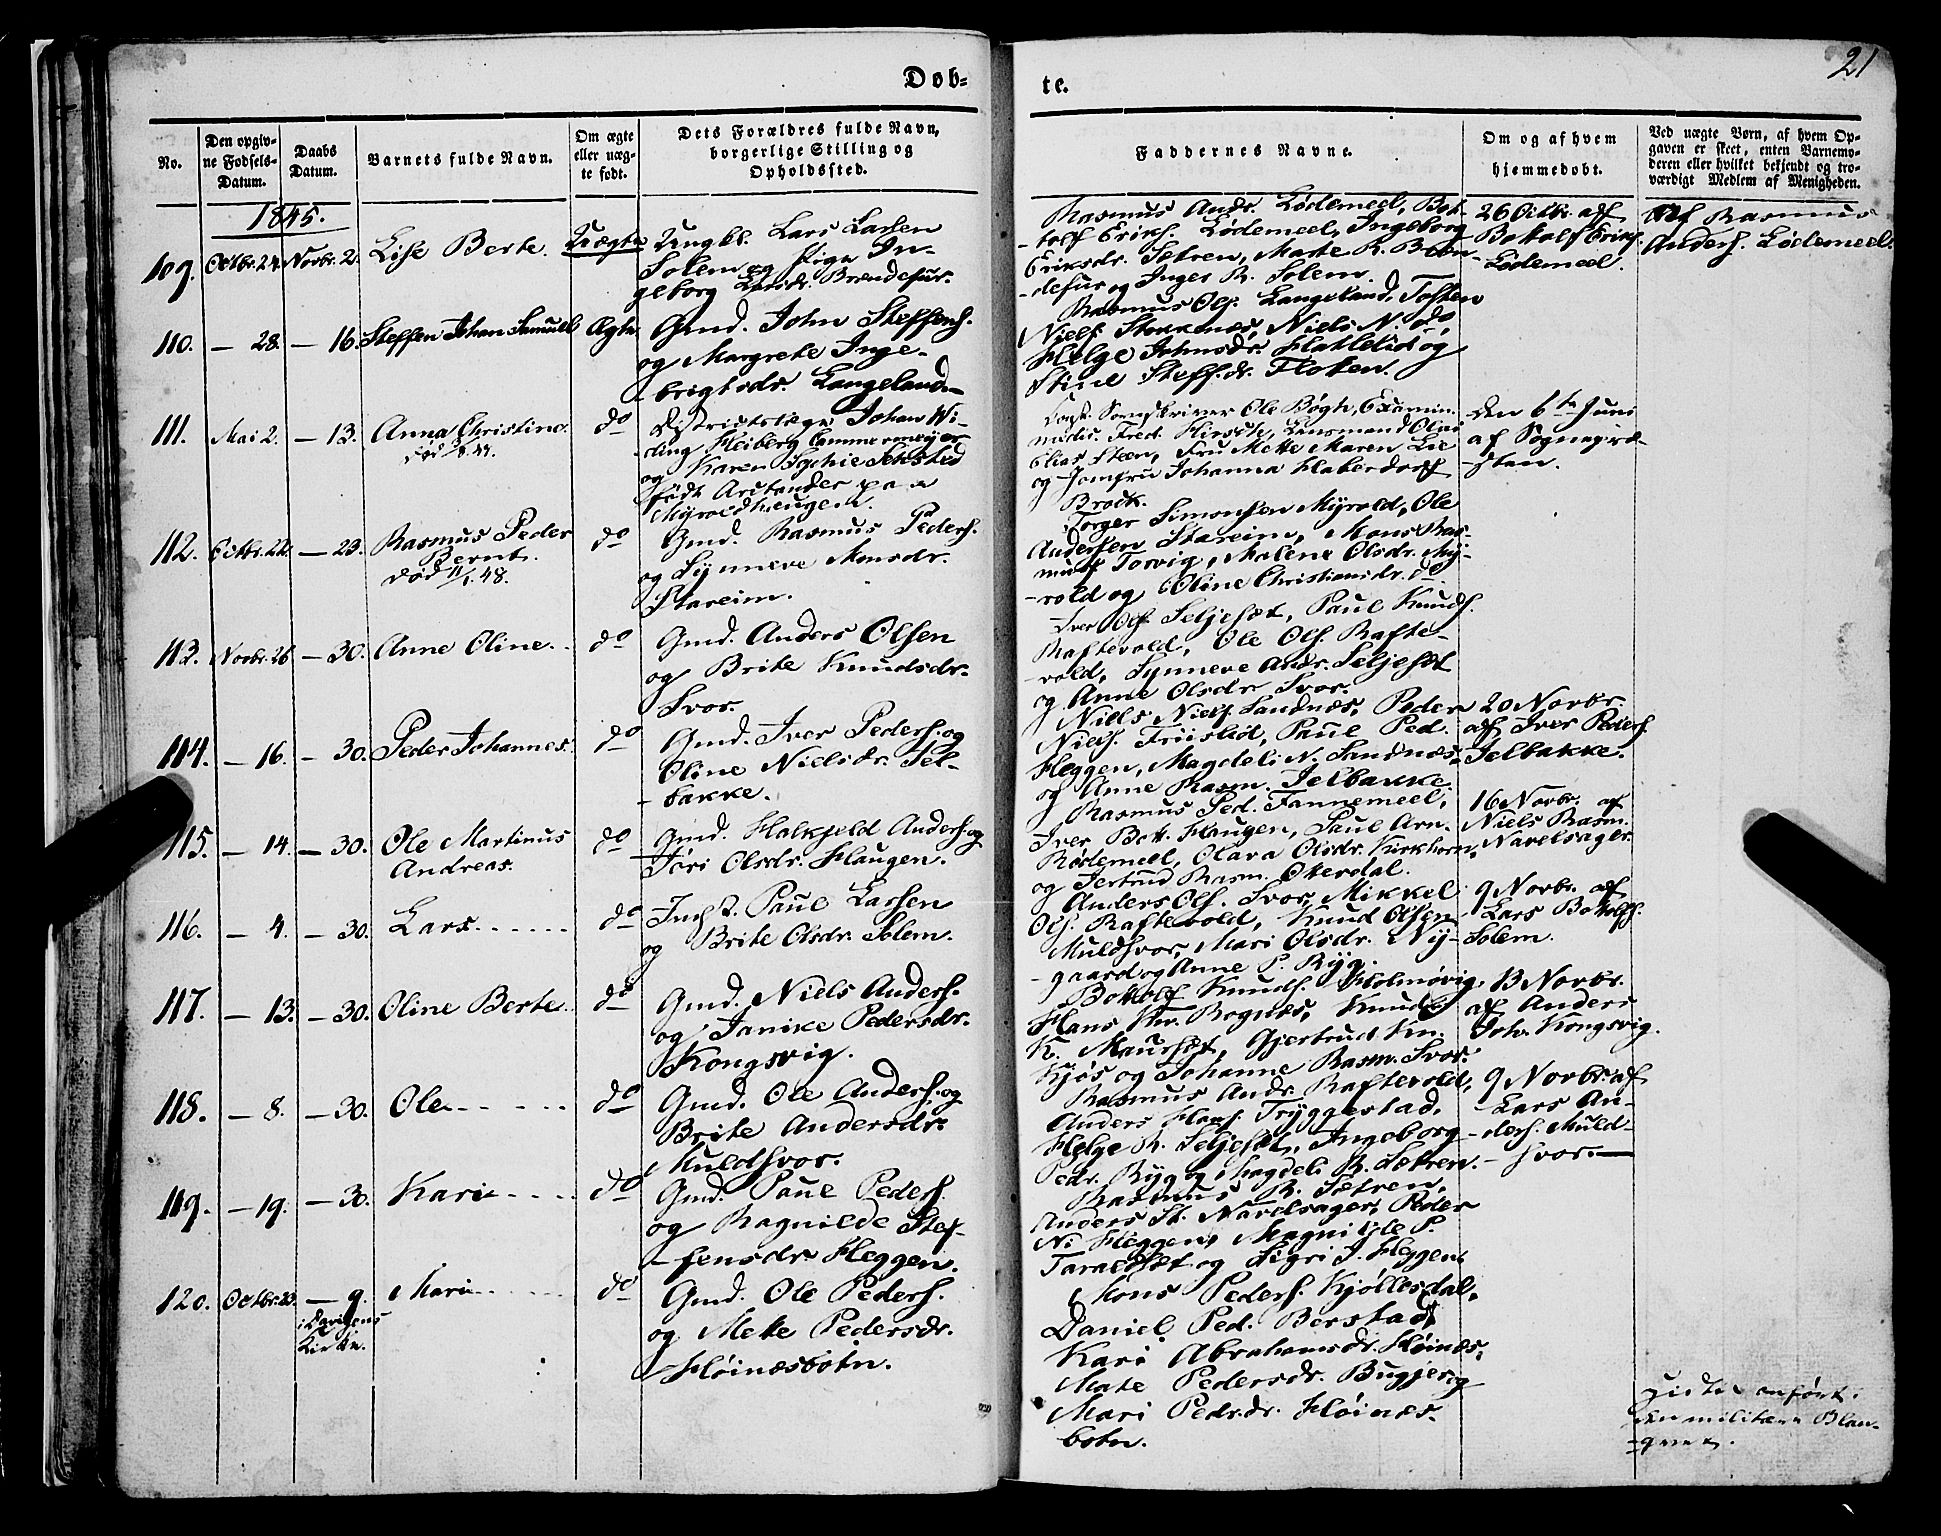 Døb-
te.
21
No.
Den opgiv-
ne Fødsels-
Datum.
Daabs
Datum.
Barnets fulde Navn.
Om ægte
eller uæg-
te født.
Dets Forældres fulde Navn,
borgerlige Stilling og
Opholdssted.
Faddernes Navne.
Om og af hvem
hjemmedøbt.
Ved uægte Børn, af hvem Op-
gaven er skeet, enten Barnemo-
deren eller hvilket bekjendt og tro-
værdigt Medlem af Menigheden.
1845.
109. Octbr. 24. Novbr. 2.
Lise Berte.
Uægte
Ungkl. Lars Larsen
Solem og Pige In-
geborg Larsdr. Brendefur.
Rasmus Andr. Lødemeel, Bot-
tolf Eriks. Lødemeel, Ingeborg
Eriksdr. Sætren, Marte R. Bren-
defur og Inger R. Solem.
26 Octbr. af
Bottolf Eriks.
Lødemeel.
Af Rasmus
Anders. Lødemeel.
110. — 28. — 16.
Steffen Johan Samuel
Ægte
Gmd. John Steffens.
og Margrete Inge-
brigtsdr. Langeland.
Rasmus Ols. Langeland, Tosten
Niels. Stokknes, Niels N. do,
Helge Johnsdr. Hatlelid og
Stine Steff.dr. Floten.
111. Mai 2. — 13.
Anna Christine.
do
Districtslæge Johan Wi-
ding Heiberg Cammermeyer
og Karen Sophie
født
Myroldhaugen.
Sorenskriver Ole Bøgh, Examin.
medic. Fred. Lensmand
Elias Steen, Fru Mette Maren Lie
og Jomfru Johanna
Brock.
Den 6te Juni
af Sognepræ-
sten.
112. Octbr. 22. — 23.
Rasmus Peder
Bernt.
død 11/1 48.
do
Gmd. Rasmus Peders.
og Synneve Monsdr.
Stareim.
Torger Simonsen Myrold, Ole
Andersen Stareim, Mons Ras-
muss. Torvig, Malene Olsdr. My-
rold og Oline Christiansdr. do.
113. Novbr. 26 — 30.
Anne Oline.
do
Gmd. Anders Olsen
og Brite Knudsdr.
Svor.
Iver Ols. Seljeset, Paul Knuds.
Raftevold, Ole Ols. Rafte-
vold, Synneve Andr. Seljeset
og Anne Olsdr. Svor.
114. — 16. — 30.
Peder Johannes.
do
Gmd. Iver Peders. og
Oline Nielsdr. Jel-
bakke.
Niels Niels. Sandnæs, Peder
Niels. Friislid, Paul Ped.
Heggen, Magdeli N. Sandnæs
og Anne Rasm. Jelbakke.
20 Novbr.
af Iver Peders.
Jelbakke.
115. — 14. — 30.
Ole Martinus
Andreas.
do
Gmd. Halkjeld Anders. og
Jøri Olsdr. Haugen.
Rasmus Ped. Tannemeel,
Iver Bott. Haugen, Paul Arn.
Rødemeel, Olava Olsdr. Kirkhorn,
og Jertrud Rasm. Oterdal.
16 Novbr. af
Niels Rasm.
Navelsager.
116. — 4. — 30.
Lars
do
Indst. Paul Larsen
og Brite Olsdr. Solem.
Anders Ols. Svor, Mikkel
Ols. Raftevold, Knud Olsen
Muldsvor, Mari Olsdr. Ny-
gaard og Anne P. Ryg.
9 Novbr. af
Lars Bottolfs.
Solem.
117. — 13. — 30.
Oline Berte
do
Gmd. Niels Anders.
og Janike Pedersdr.
Kongsvig.
Bottolf Knuds. Holmøvig,
Hans Rognes, Knud
K. Maurset, Gjertrud Kn.
Kjøs og Johanne Rasm. Svor.
13 Novbr.
af Anders
Joh. Kongsvig.
118. — 8. — 30.
Ole
do
Gmd. Ole Anders. og
Brite Andersdr.
Muldsvor.
Rasmus Andr. Raftevold,
Anders Hans. Tryggestad,
Helge R. Seljeset, Ingeborg
Pedr. Ryg og Magdeli R. Sætren.
9 Novbr. af
Lars An-
ders. Muld-
svor.
119. — 19. — 30.
Kari
do
Gmd. Paul Peders.
og Ragnilde Stef-
fensdr. Heggen.
Rasmus R. Sætren,
Anders St. Navelsager, Peder
Ni. Heggen, Magnilde P.
Taraldset og Sigri J. Heggen.
120. Octbr. 23. — 9.
i Davigens
Kirke.
Mari
do
Gmd. Ole Peders.
og Mette Pedersdr.
Høinæsbotn.
Mons Peders. Kjøllesdal,
Daniel Ped. Borstad,
Kari Abrahamsdr. Høinæs,
Mate Pedersdr. Bugjerig
Mari Pedr.dr. Høinæs-
botn.
Hidtil anført i
den militære Blan-
quet.